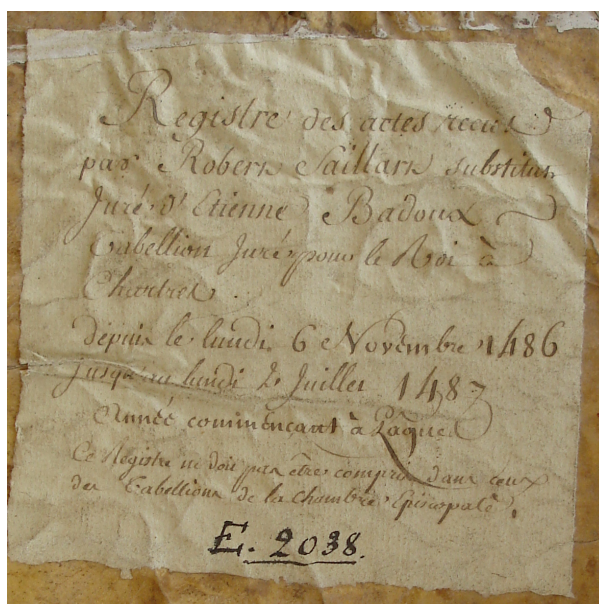 Registre des actes recus
par Robert Saillart substitut
Juré d'Etienne Badoux
Tabellion Juré pour le Roi à
Chartres.
depuis le lundi 6 Novembre 1486
jusqu'au lundi 2 Juillet 1487
Année commencant à Pâques
Ce Registre ne doit pas être compris dans ceux
des Tabellions de la chambre Episcopale.
E. 2038.